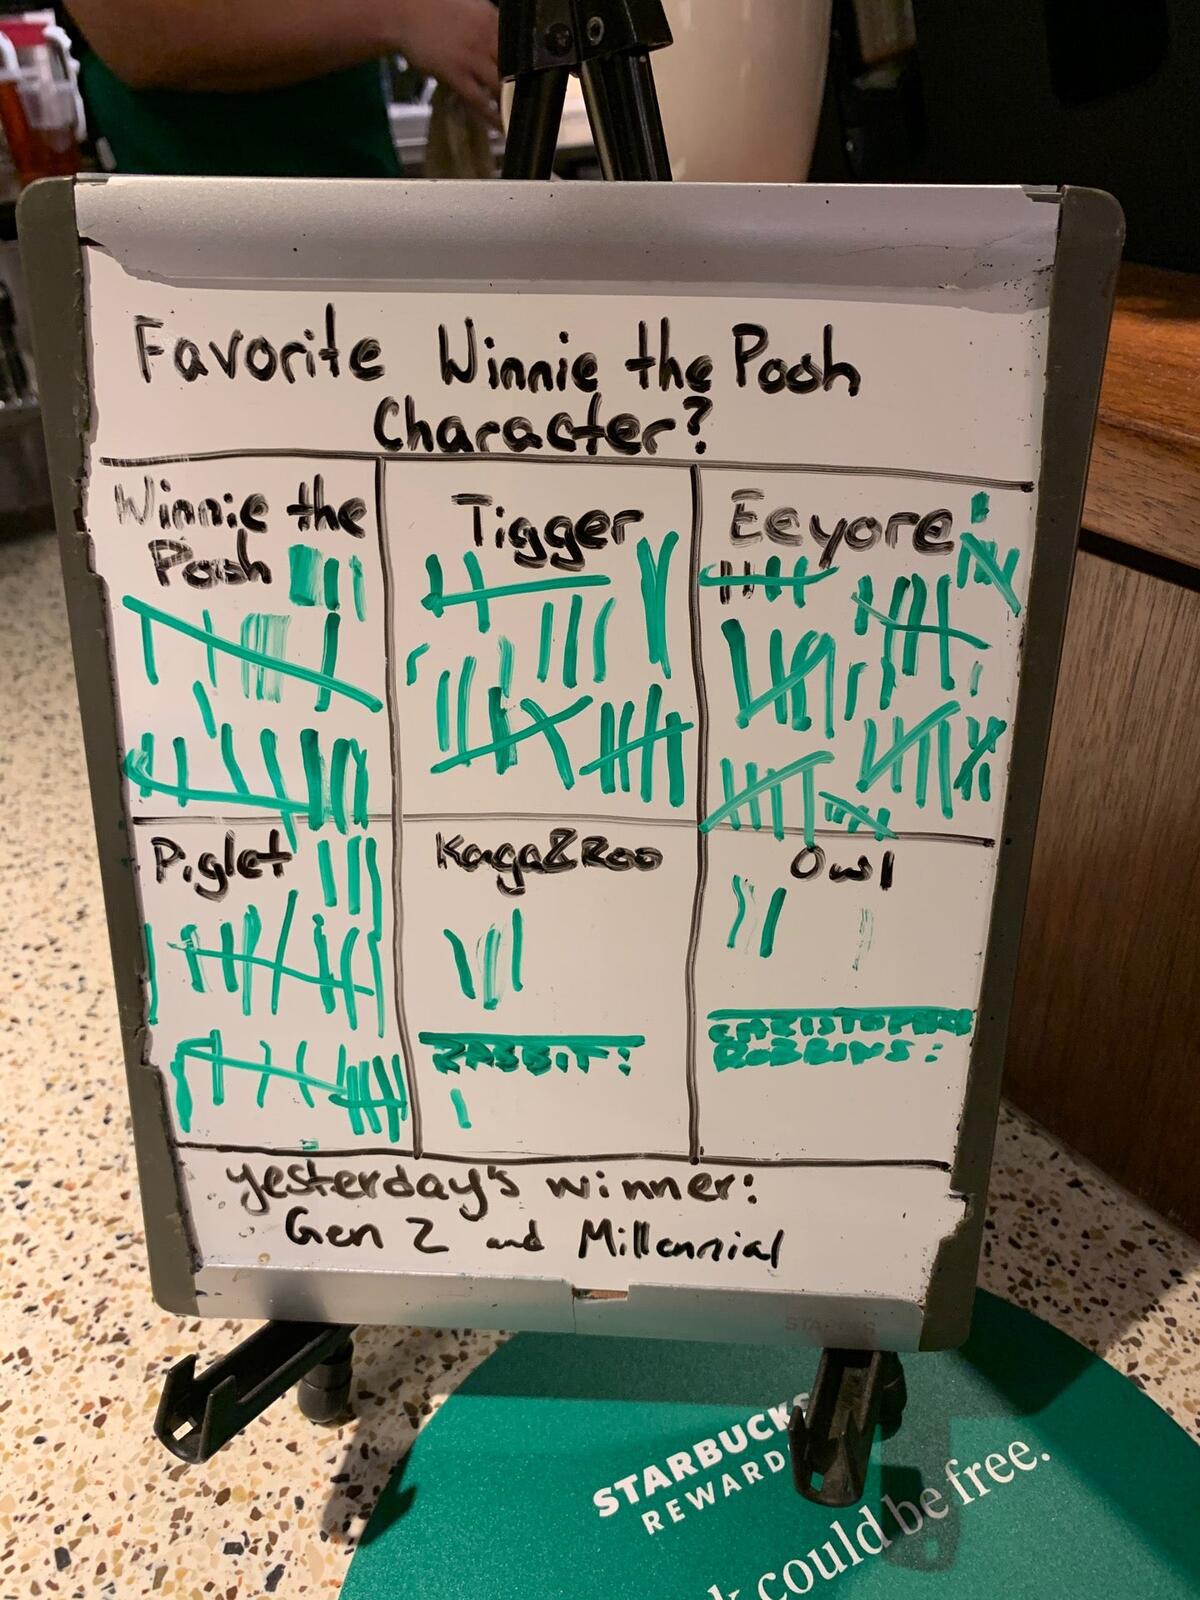 Favorite Winnie the Pooh
Character?
Winnie the
Pooh
Tigger
Eeyore
Piglet
Kaga&Roo
Owl
RABBIT:
CHRISTOPHER
ROBBINS:
yesterday's winner:
Gen Z and Millennial
STAPLES
STARBUCKS
REWARDS
could be free.